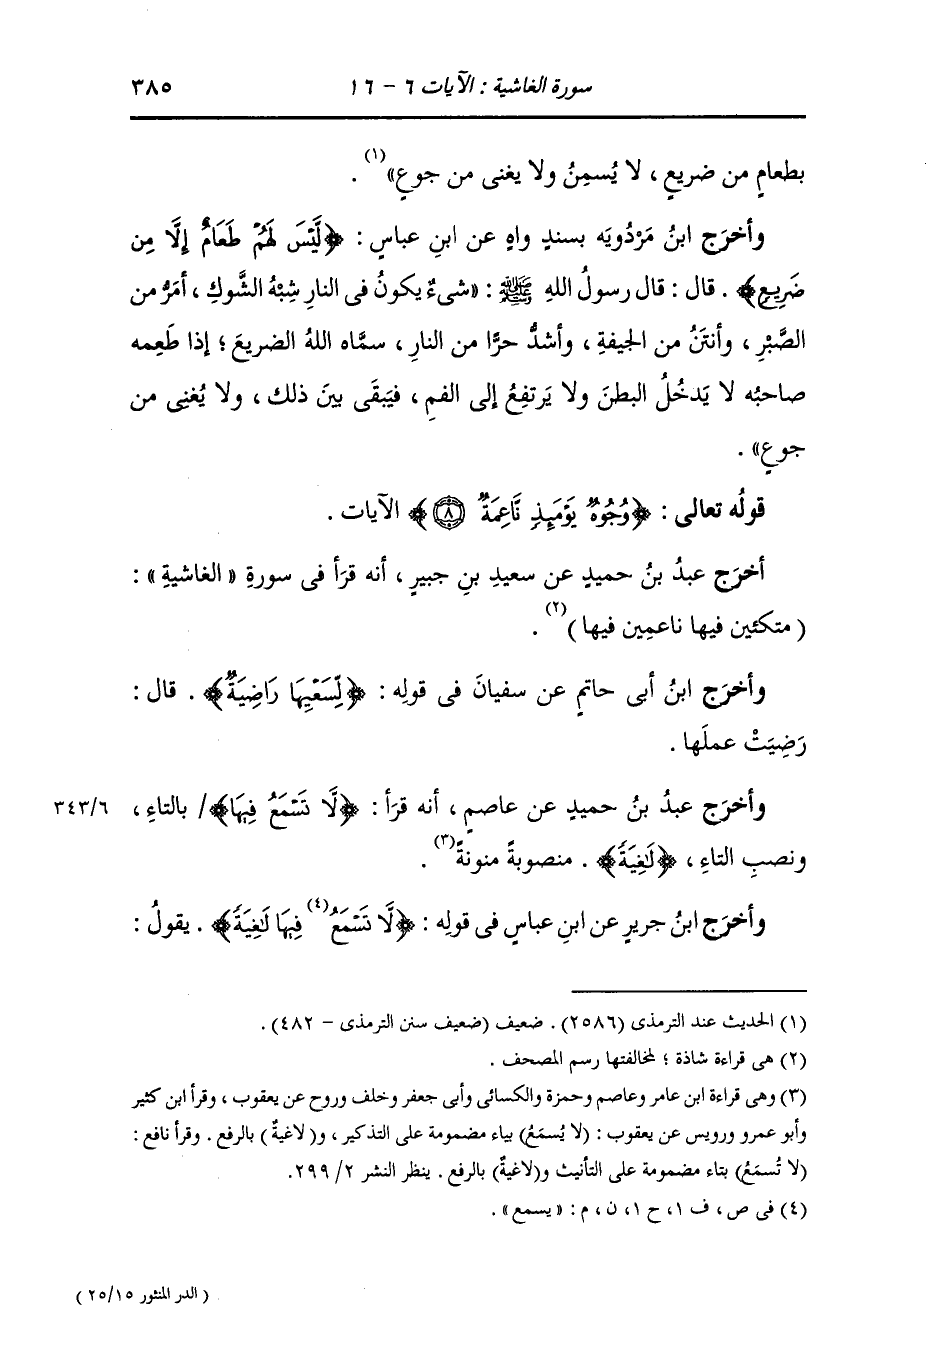 سورة الغاشية : الآيات ٦ - ١٦ ٣٨٥
بطعامٍ من ضريعٍ ، لا يُسمِنُ ولا يغنى من جوعٍ»(١) .
وأخرَج ابنُ مَرْدُويَه بسندٍ واهٍ عن ابنِ عباسٍ : ﴿لَّيْسَ لَهُمْ طَعَامٌ إِلَّا مِن
ضَرِيعٍ﴾ . قال : قال رسولُ اللهِ ﷺ : «شىءٌ يكونُ فى النارِ شِبْهُ الشَّوكِ ، أمَرُّ من
الصَّبْرِ ، وأنتَنُ من الجيفةِ ، وأشدُّ حرًّا من النارِ ، سمَّاه اللهُ الضريعَ ؛ إذا طَعِمه
صاحبُه لا يَدخُلُ البطنَ ولا يَرتفِعُ إلى الفمِ ، فيَبقَى بينَ ذلك ، ولا يُغنِى من
جوعٍ» .
قولُه تعالى : ﴿وُجُوهٌ يَوْمَئِذٍ نَّاعِمَةٌ ٨﴾ الآيات .
أخرَج عبدُ بنُ حميدٍ عن سعيدِ بنِ جبيرٍ ، أنه قرَأ فى سورةِ « الغاشيةِ » :
( متكئين فيها ناعمِين فيها )(٢) .
وأخرَج ابنُ أبى حاتمٍ عن سفيانَ فى قولِه : ﴿لِّسَعْيِهَا رَاضِيَةٌ﴾ . قال :
رَضِيَتْ عملَها .
وأخرَج عبدُ بنُ حميدٍ عن عاصمٍ ، أنه قرَأ : ﴿لَّا تَسْمَعُ فِيهَا﴾/ بالتاءِ ، ٣٤٣/٦
ونصبِ التاءِ ، ﴿لَٰغِيَةً﴾ . منصوبةً منونةً(٣) .
وأخرَج ابنُ جريرٍ عن ابنِ عباسٍ فى قولِه : ﴿لَّا تَسْمَعُ(٤) فِيهَا لَٰغِيَةً﴾ . يقولُ :
(١) الحديث عند الترمذى (٢٥٨٦) . ضعيف (ضعيف سنن الترمذى - ٤٨٢) .
(٢) هى قراءة شاذة ؛ لمخالفتها رسم المصحف .
(٣) وهى قراءة ابن عامر وعاصم وحمزة والكسائى وأبى جعفر وخلف وروح عن يعقوب ، وقرأ ابن كثير
وأبو عمرو ورويس عن يعقوب : (لا يُسمَعُ) بياء مضمومة على التذكير ، و( لاغيةٌ ) بالرفع . وقرأ نافع :
(لا تُسمَعُ) بتاء مضمومة على التأنيث و(لاغيةٌ) بالرفع . ينظر النشر ٢/ ٢٩٩.
(٤) فى ص ، ف ١، ح ١، ن ، م : « يسمع » .
( الدر المنثور ٢٥/١٥ )